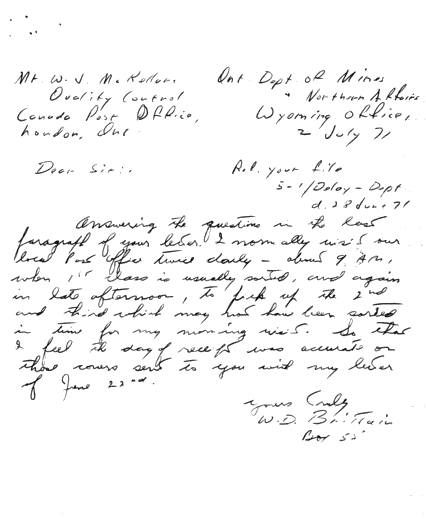 Mr. W. J. McKellar,
Quality Control
Canada Post Office,
London, Ont
Ont Dept of Mines
" Northern Affairs
Wyoming Office,
2 July 71
Dear Sir:.
Ref. your file
5-1/Delay - Dept
d. 28 June 71
Answering the question in the last
paragraph of your letter. I normally visit our
local Post Office twice daily - about 9 A.M,
when 1st class is usually sorted, and again
in late afternoon, to pick up the 2nd
and third which may not have been sorted
in time for my morning visit. So that
I feel the day of receipt was accurate on
those covers sent to you with my letter
of June 22nd.
Yours truly
W.D. Brittain
Box 55